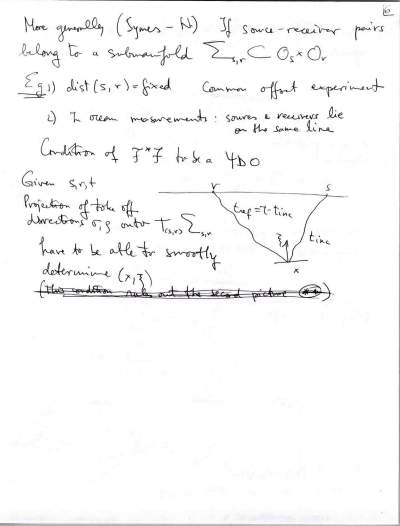 6
More generally (Symes - N) If source-receiver pairs
belong to a submanifold Σ_{s,r} ⊂ O_s × O_r
Eg 1) dist(s, r) = fixed Common offset experiment
2) In ocean measurements: sources & receivers lie
on the same line
Condition of F*F to be a ΨDO
Given s, r, t
r s
Projection of take off
directions σ, ρ onto T_{(s,r)} Σ_{s,r}
t_ref = t - t_inc
ξ t_inc
x
have to be able to smoothly
determine (x, ξ)
(This condition rules out the second picture)